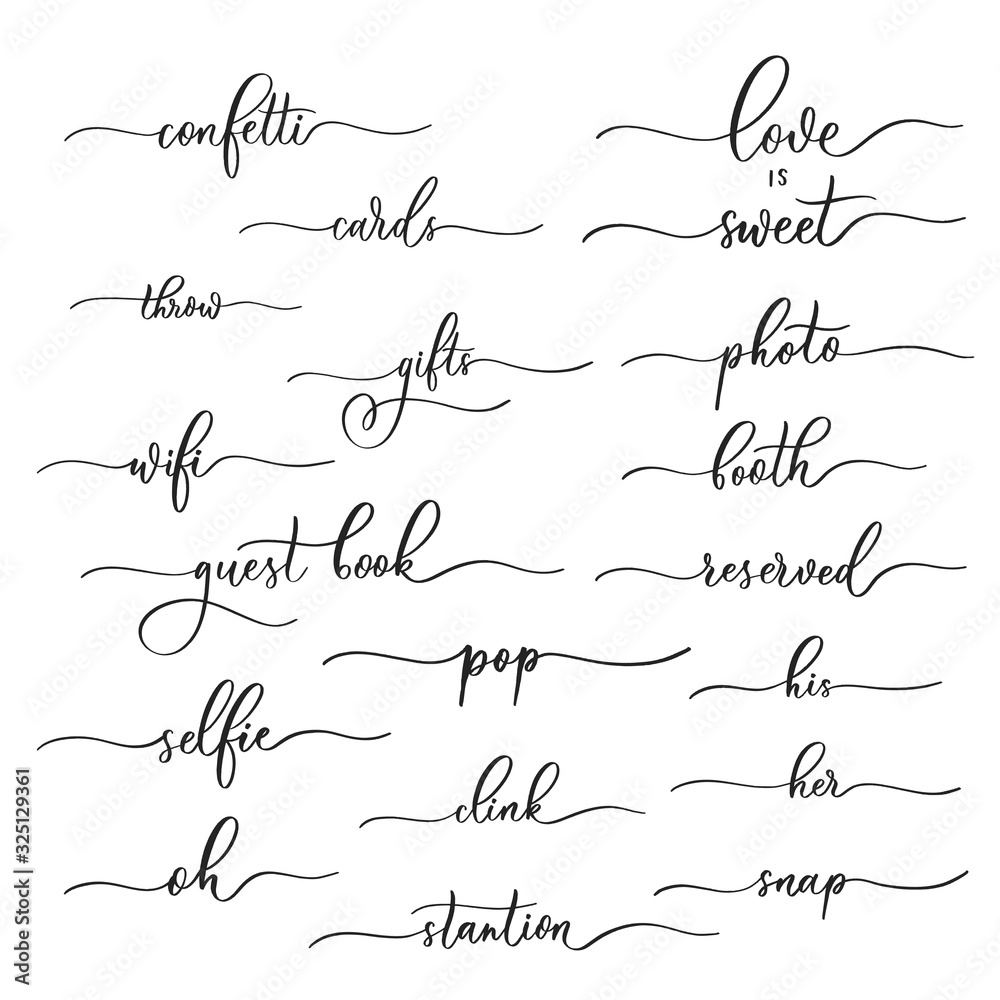 confetti
love
IS
sweet
cards
throw
photo
gifts
booth
wifi
guest book
reserved
pop
his
selfie
her
clink
oh
snap
stantion
Adobe Stock | #325129361